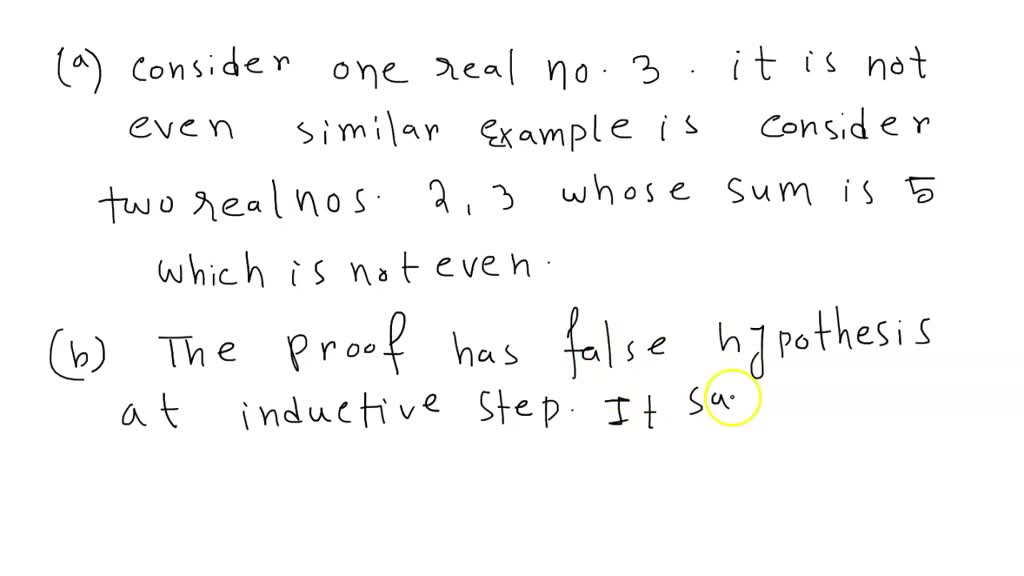 (a) consider one real no. 3. it is not
even similar example is consider
two real nos. 2, 3 whose sum is 5
which is not even.
(b) The proof has false hypothesis
at inductive step. It sa